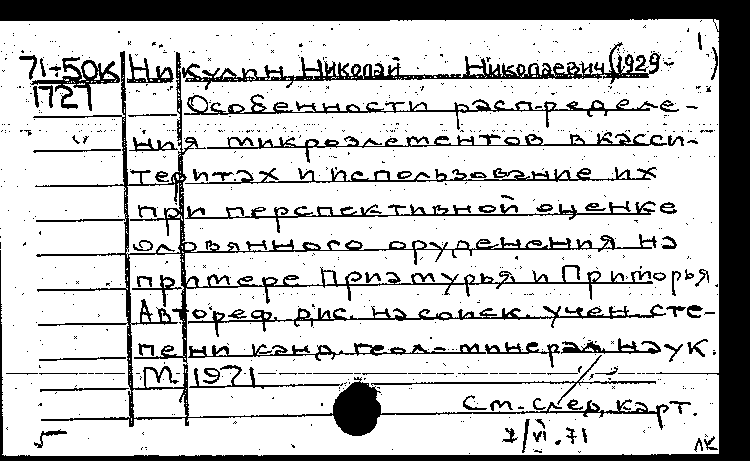 71-50К Никулин, Николай Николаевич (1929- )
1727 Особенности распределе-
ния микроэлементов в касси-
теритах и использование их
при перспективной оценке
оловянного оруденения на
примере Приамурья и Приморья.
Автореф. дис. на соиск. учен. сте-
пени канд. геол.-минерал. наук.
М. 1971
См. след. карт.
/VI.71
ЛК